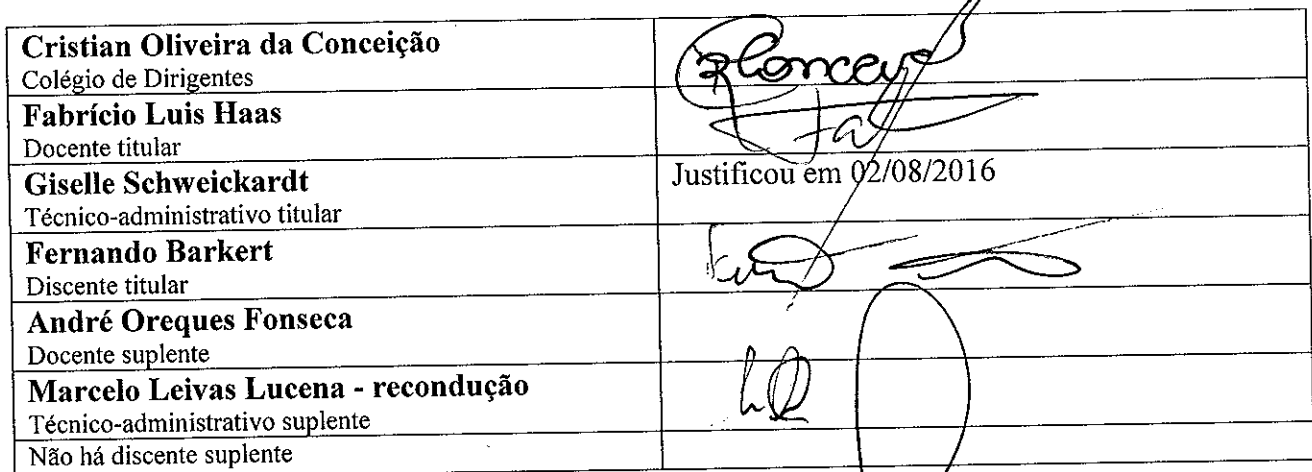 Cristian Oliveira da Conceição
Colégio de Dirigentes
Fabrício Luis Haas
Docente titular
Giselle Schweickardt
Justificou em 02/08/2016
Técnico-administrativo titular
Fernando Barkert
Discente titular
André Oreques Fonseca
Docente suplente
Marcelo Leivas Lucena - recondução
Técnico-administrativo suplente
Não há discente suplente